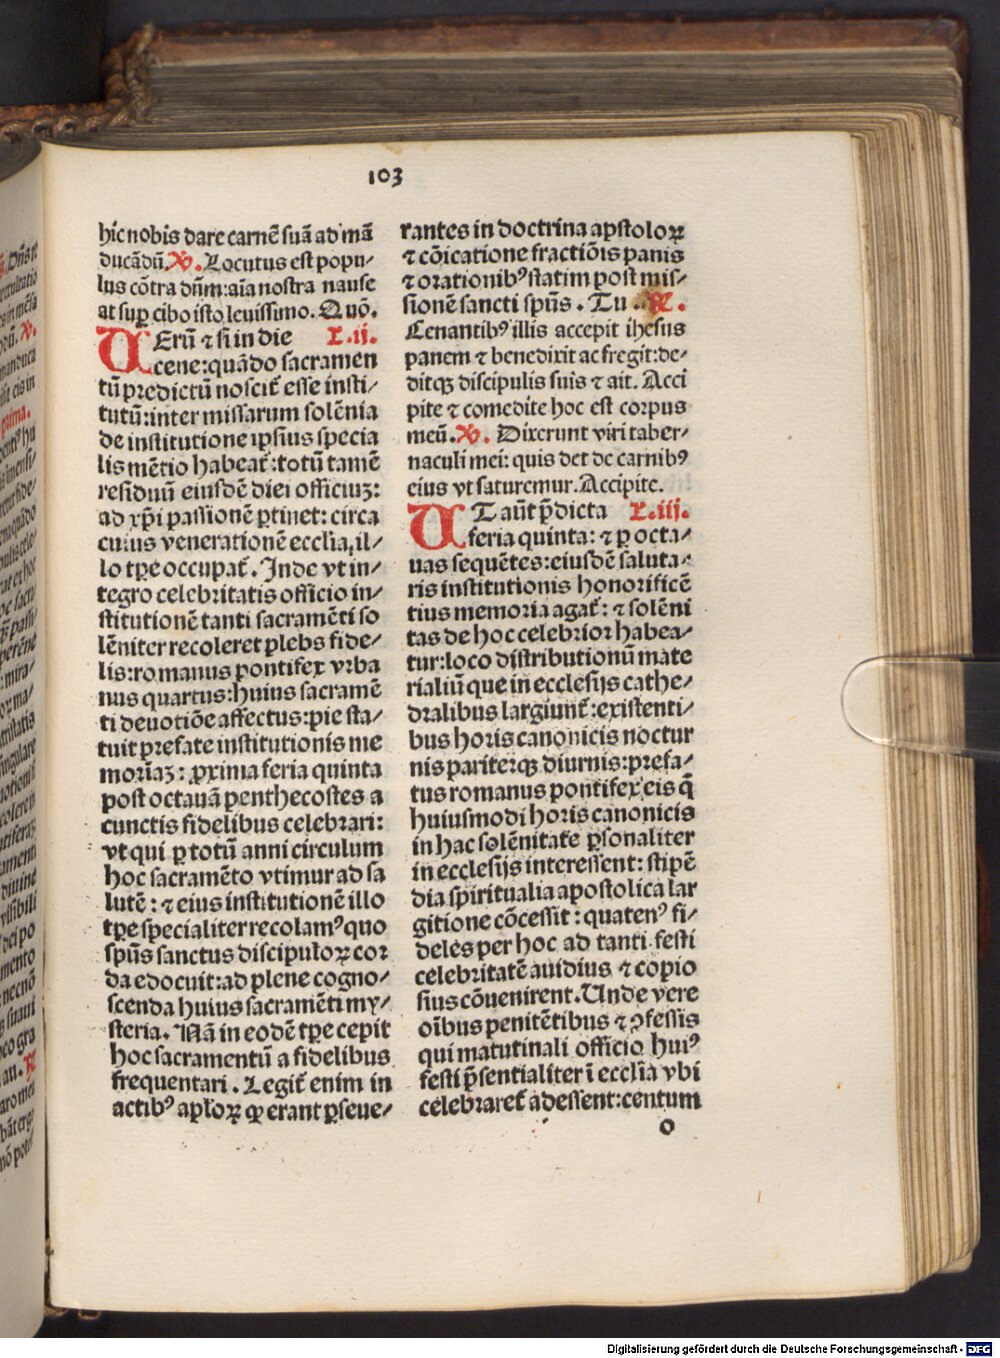 103
hic nobis dare carnē suā ad mā
ducādū. ℣. Locutus est popu⸗
lus cōtra dñm: aīa nostra nause
at suꝑ cibo isto leuissimo. Quō.
UErū ⁊ si in die L.ij.
cene: quādo sacramen
tū predictū noscit̄ esse insti⸗
tutū: inter missarum solēnia
de institutione ipsius specia
lis mētio habeat̄: totū tamē
residuū eiusdē diei officiuꝫ:
ad xp̄i passionē ꝑtinet: circa
cuius venerationē ecclīa, il⸗
lo tꝑe occupat̄. Inde vt in⸗
tegro celebritatis officio in⸗
stitutionē tanti sacramēti so
lēniter recoleret plebs fide⸗
lis: romanus pontifex vrba
nus quartus: huius sacramē
ti deuotiōe affectus: pie sta⸗
tuit prefate institutionis me
moriaꝫ: ꝓxima feria quinta
post octauā penthecostes a
cunctis fidelibus celebrari:
vt qui ꝑ totū anni circulum
hoc sacramēto vtimur ad sa
lutē: ⁊ eius institutionē illo
tꝑe specialiter recolamꝰ quo
spūs sanctus discipuloꝝ cor
da edocuit: ad plene cogno⸗
scenda huius sacramēti my⸗
steria. Nā in eodē tꝑe cepit
hoc sacramentū a fidelibus
frequentari. Legit̄ enim in
actibꝰ apl̄oꝝ ꝙ erant ꝑseue⸗
rantes in doctrina apstoloꝝ
⁊ cōicatione fractiōis panis
⁊ orationibꝰ statim post mis⸗
sionē sancti spūs. Tu. ℟.
Cenantibꝰ illis accepit ihesus
panem ⁊ benedixit ac fregit: de⸗
ditqꝫ discipulis suis ⁊ ait. Acci
pite ⁊ comedite hoc est corpus
meū. ℣. Dixerunt viri taber⸗
naculi mei: quis det de carnibꝰ
eius vt saturemur. Accipite.
UT aūt p̄dicta L.iij.
feria quinta: ⁊ ꝑ octa⸗
uas sequētes: eiusdē saluta⸗
ris institutionis honorificē
tius memoria agat̄: ⁊ solēni
tas de hoc celebrior habea⸗
tur: loco distributionū mate
rialiū que in ecclesijs cathe⸗
dralibus largiunt̄: existenti⸗
bus horis canonicis noctur
nis pariterqꝫ diurnis: prefa⸗
tus romanus pontifex eis q̄
huiusmodi horis canonicis
in hac solēnitate ꝑsonaliter
in ecclesijs interessent: stipē
dia spiritualia apostolica lar
gitione cōcessit: quatenꝰ fi⸗
deles per hoc ad tanti festi
celebritatē auidius ⁊ copio
sius cōuenirent. Unde vere
oībus penitētibus ⁊ ꝯfessis
qui matutinali officio huiꝰ
festi p̄sentialiter ī ecclīa vbi
celebraret̄ adessent: centum
o
Digitalisierung gefördert durch die Deutsche Forschungsgemeinschaft - DFG